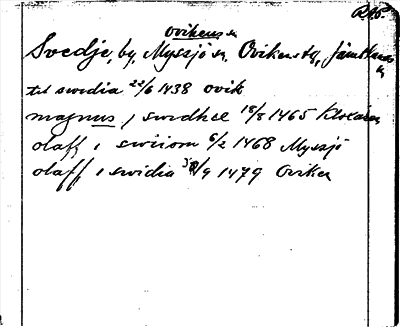 Ovikens sn
Svedje, by, Myssjö sn, Ovikens tg, Jämtlands
til swedia 22/6 1438 ovik
magnus i swedhee 18/8 1465
olaff i swiiom 6/2 1468 Myssjö
olaff i swidia 30/9 1479 Oviken